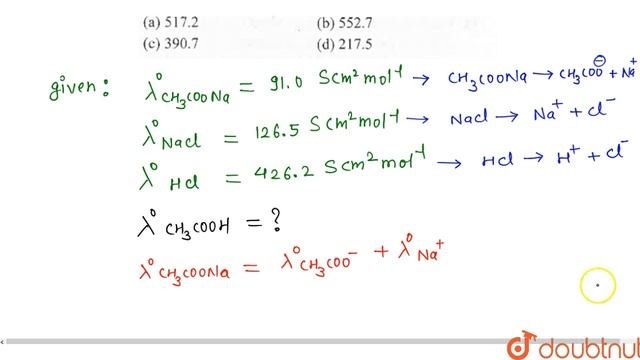 (a) 517.2 (b) 552.7
(c) 390.7 (d) 217.5
given: λ⁰ CH₃COONa = 91.0 Scm²mol⁻¹ → CH₃COONa → CH₃COO⊖ + Na⁺
λ⁰ NaCl = 126.5 Scm²mol⁻¹ → NaCl → Na⁺ + Cl⁻
λ⁰ HCl = 426.2 Scm²mol⁻¹ → HCl → H⁺ + Cl⁻
λ⁰ CH₃COOH = ?
λ⁰ CH₃COONa = λ⁰ CH₃COO⁻ + λ⁰ Na⁺
doubtnut